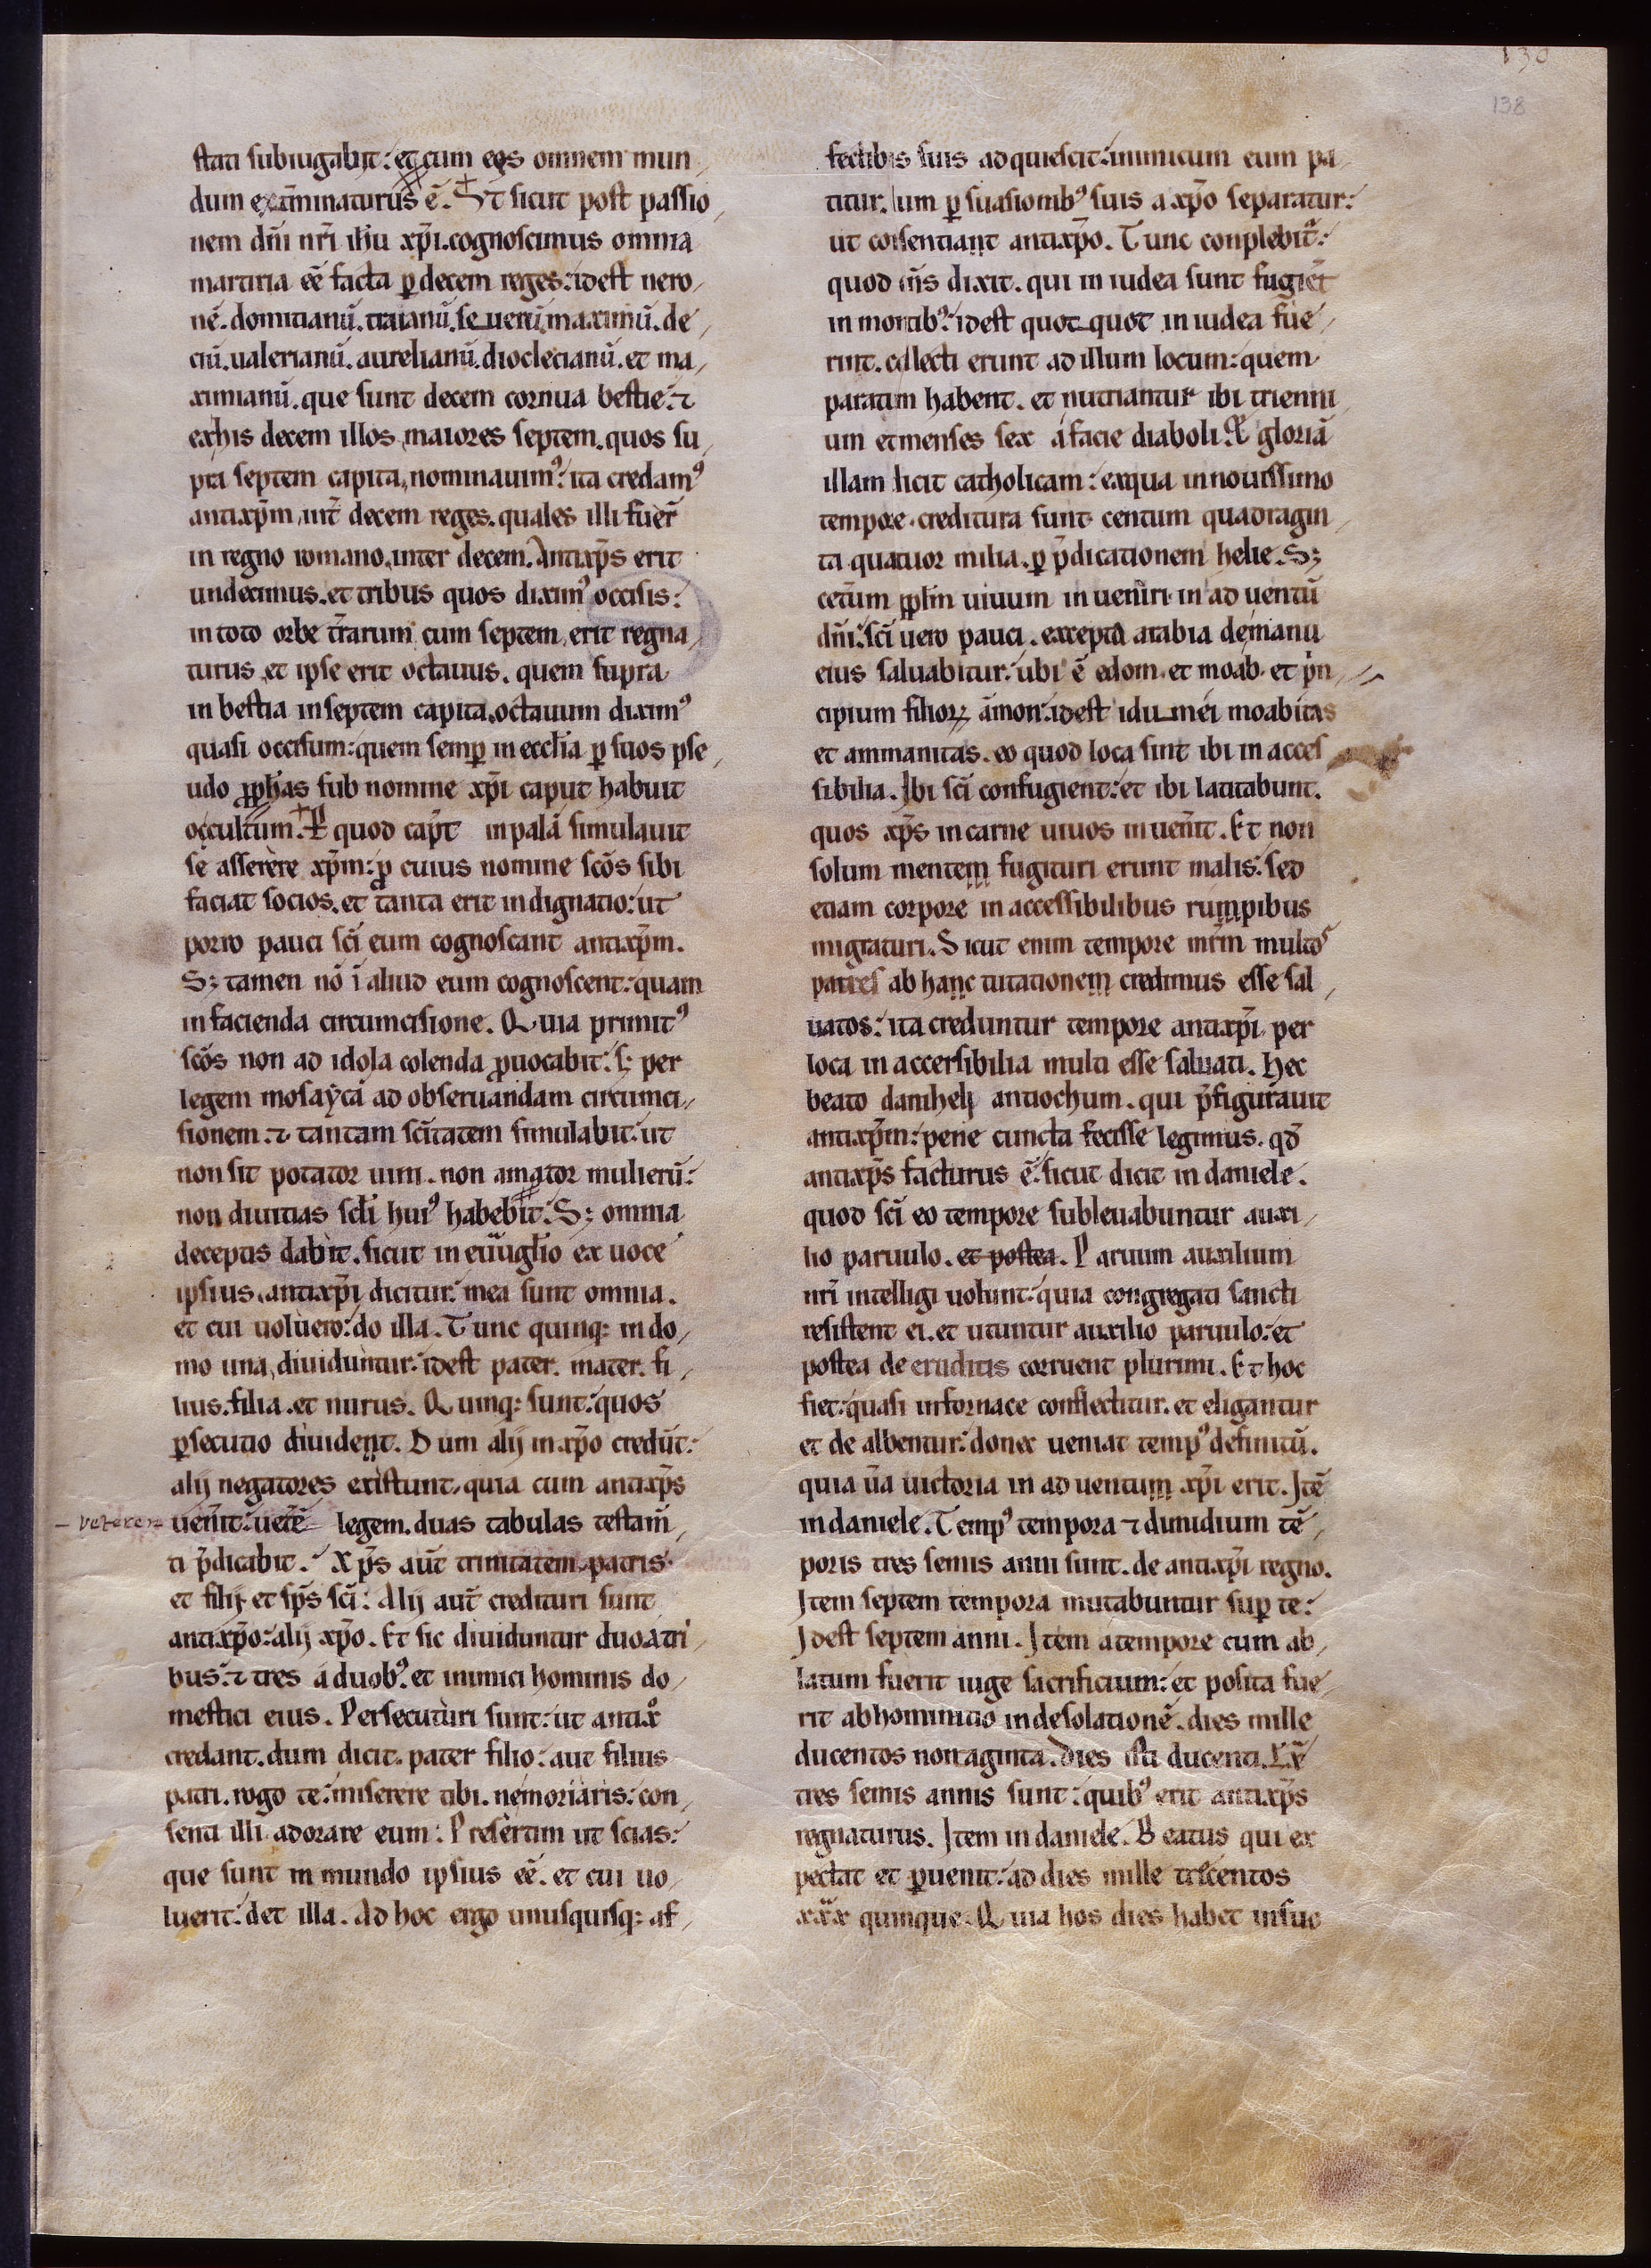 130
138
stati subiugabit: et cum eos omnem mun
dum ext̄minaturus ē. St sicut post passio
nem dn̄i nr̄i ih̄u xp̄i. cognoscimus omnia
martiria eē facta ꝑ decem reges: idest nero
nē. domitianū. traianū. se uerū. maximū. de
ciū. ualerianū. aurelianū. dioclecianū. et ma
ximianū. que sunt decem cornua bestie: ⁊
ex his decem illos maiores septem. quos su
pra septem capita nominauimꝰ: ita credamꝰ
antixp̄m int̄ decem reges. quales illi fuer̄
in regno romano. inter decem. Antixp̄s erit
undecimus. et tribus quos diximꝰ occisis:
in toto orbe tr̄arum cum septem erit regna
turus et ipse erit octauus. quem supra
in bestia in septem capita. octauum diximꝰ
quasi occisum: quem semꝑ in eccl̄ia ꝑ suos pse
udo ꝓph̄as sub nomine xp̄i caput habuit
occultum. P quod cap̄t in palā simulauit
se asserere xp̄m: ꝓ cuius nomine sc̄os sibi
faciat socios. et tanta erit indignatio: ut
porro pauci sc̄i eum cognoscant antixp̄m.
Sꝫ tamen nō ī aliud eum cognoscent: quam
in facienda circumcisione. Quia primitꝰ
sc̄os non ad idola colenda ꝓuocabit: sꝫ per
legem mosaycā ad obseruandam circumci
sionem. ⁊ tantam sc̄itatem simulabit: ut
non sit potator uini. non amator mulierū:
non diuitias scl̄i huiꝰ habebit. Sꝫ omnia
deceptis dabit. sicut in euuglīo ex uoce
ipsius antixp̄i dicitur: mea sunt omnia.
et cui uoluero: do illa. Tunc quinqꝫ in do
mo una diuiduntur: idest pater. mater. fi
lius. filia. et nurus. Quinqꝫ sunt: quos
ꝑsecutio diuident. Dum alij in xp̄o credūt:
alij negatores existunt. quia cum antixp̄s
- veterem
uen̄it: uetē legem. duas tabulas testam̄
ti p̄dicabit. Xp̄s aut̄ trinitatem patris
et filij et sp̄s sc̄i: Alij aut̄ credituri sunt
antixp̄o: alij xp̄o. Et sic diuiduntur duo a tri
bus: ⁊ tres a duobꝰ. et inimici hominis do
mestici eius. Persecuturi sunt: ut antixo
credant. dum dicit. pater filio: aut filius
patri. rogo te: miserere tibi. ne moriaris: con
senti illi adorare eum: Presertim ut scias:
que sunt in mundo ipsius eē. et cui uo
luerit: det illa. Ad hoc ergo unusquisqꝫ af
fectibus suis adquiescit: inimicum eum pa
titur. dum ꝑ suasionibꝰ suis a xp̄o separatur:
ut consentiant antixp̄o. Tunc conplebit᷑:
quod ih̄s dixit. qui in iudea sunt fugient
in montibꝰ: idest quot quot in iudea fue
rint. collecti erunt ad illum locum: quem
paratum habent. et nutriantur ibi trienni
um et menses sex a facie diaboli. gloriā
illam dicit catholicam: ex qua in nouissimo
tempore creditura sunt centum quadragin
ta quatuor milia. ꝑ p̄dicationem helie. Sꝫ
cet̄um ppl̄m uiuum in ueniri in ad uentū
dn̄i: sc̄i uero pauci. excepta arabia de manu
eius saluabitur: ubi ē edom. et moab. et p̄n
cipium filioꝝ āmon: idest idu mei moabitas
et ammanitas. eo quod loca sint ibi in acces
sibilia. Ibi sc̄i confugient: et ibi latitabunt.
quos xp̄s in carne uiuos inuen̄it. Et non
solum mentem fugituri erunt malis: sed
etiam corpore in accessibilibus rumpibus
migraturi. Sicut enim tempore mr̄m multos
patres ab hanc tutationem credimus esse sal
uatos: ita creduntur tempore antixp̄i per
loca in accersibilia multi esse saluati. Hec
beato danihelj antiochum. qui p̄figurauit
antixp̄m: pene cuncta fecisse legimus. qd̄
antixp̄s facturus ē: sicut dicit in daniele.
quod sc̄i eo tempore subleuabuntur auxi
lio paruulo. et postea. Paruum auxilium
nr̄i intelligi uolunt: quia congregati sancti
resistent ei. et utuntur auxilio paruulo: et
postea de eruditis corruent plurimi. Et hoc
fiet: quasi in fornace conflectitur. et eligantur
et de albentur: donec ueniat tempꝰ definitū.
quia ūa uictoria in ad uentum xp̄i erit. Itē
in daniele. Tempꝰ tempora ⁊ dimidium tē
poris tres semis anni sunt. de antixp̄i regno.
Item septem tempora mutabuntur suꝑ te:
Idest septem anni. Item a tempore cum ab
latum fuerit iuge sacrificium: et posita fue
rit abhominatio in desolationē. dies mille
ducentos nonaginta. Dies isti ducenti. LXē
tres semis annis sunt: quibꝰ erit antixp̄s
regnaturus. Item in daniele. Beatus qui ex
pectat et ꝑuenit: ad dies mille trecentos
xxx quinque. Quia hos dies habet in suo